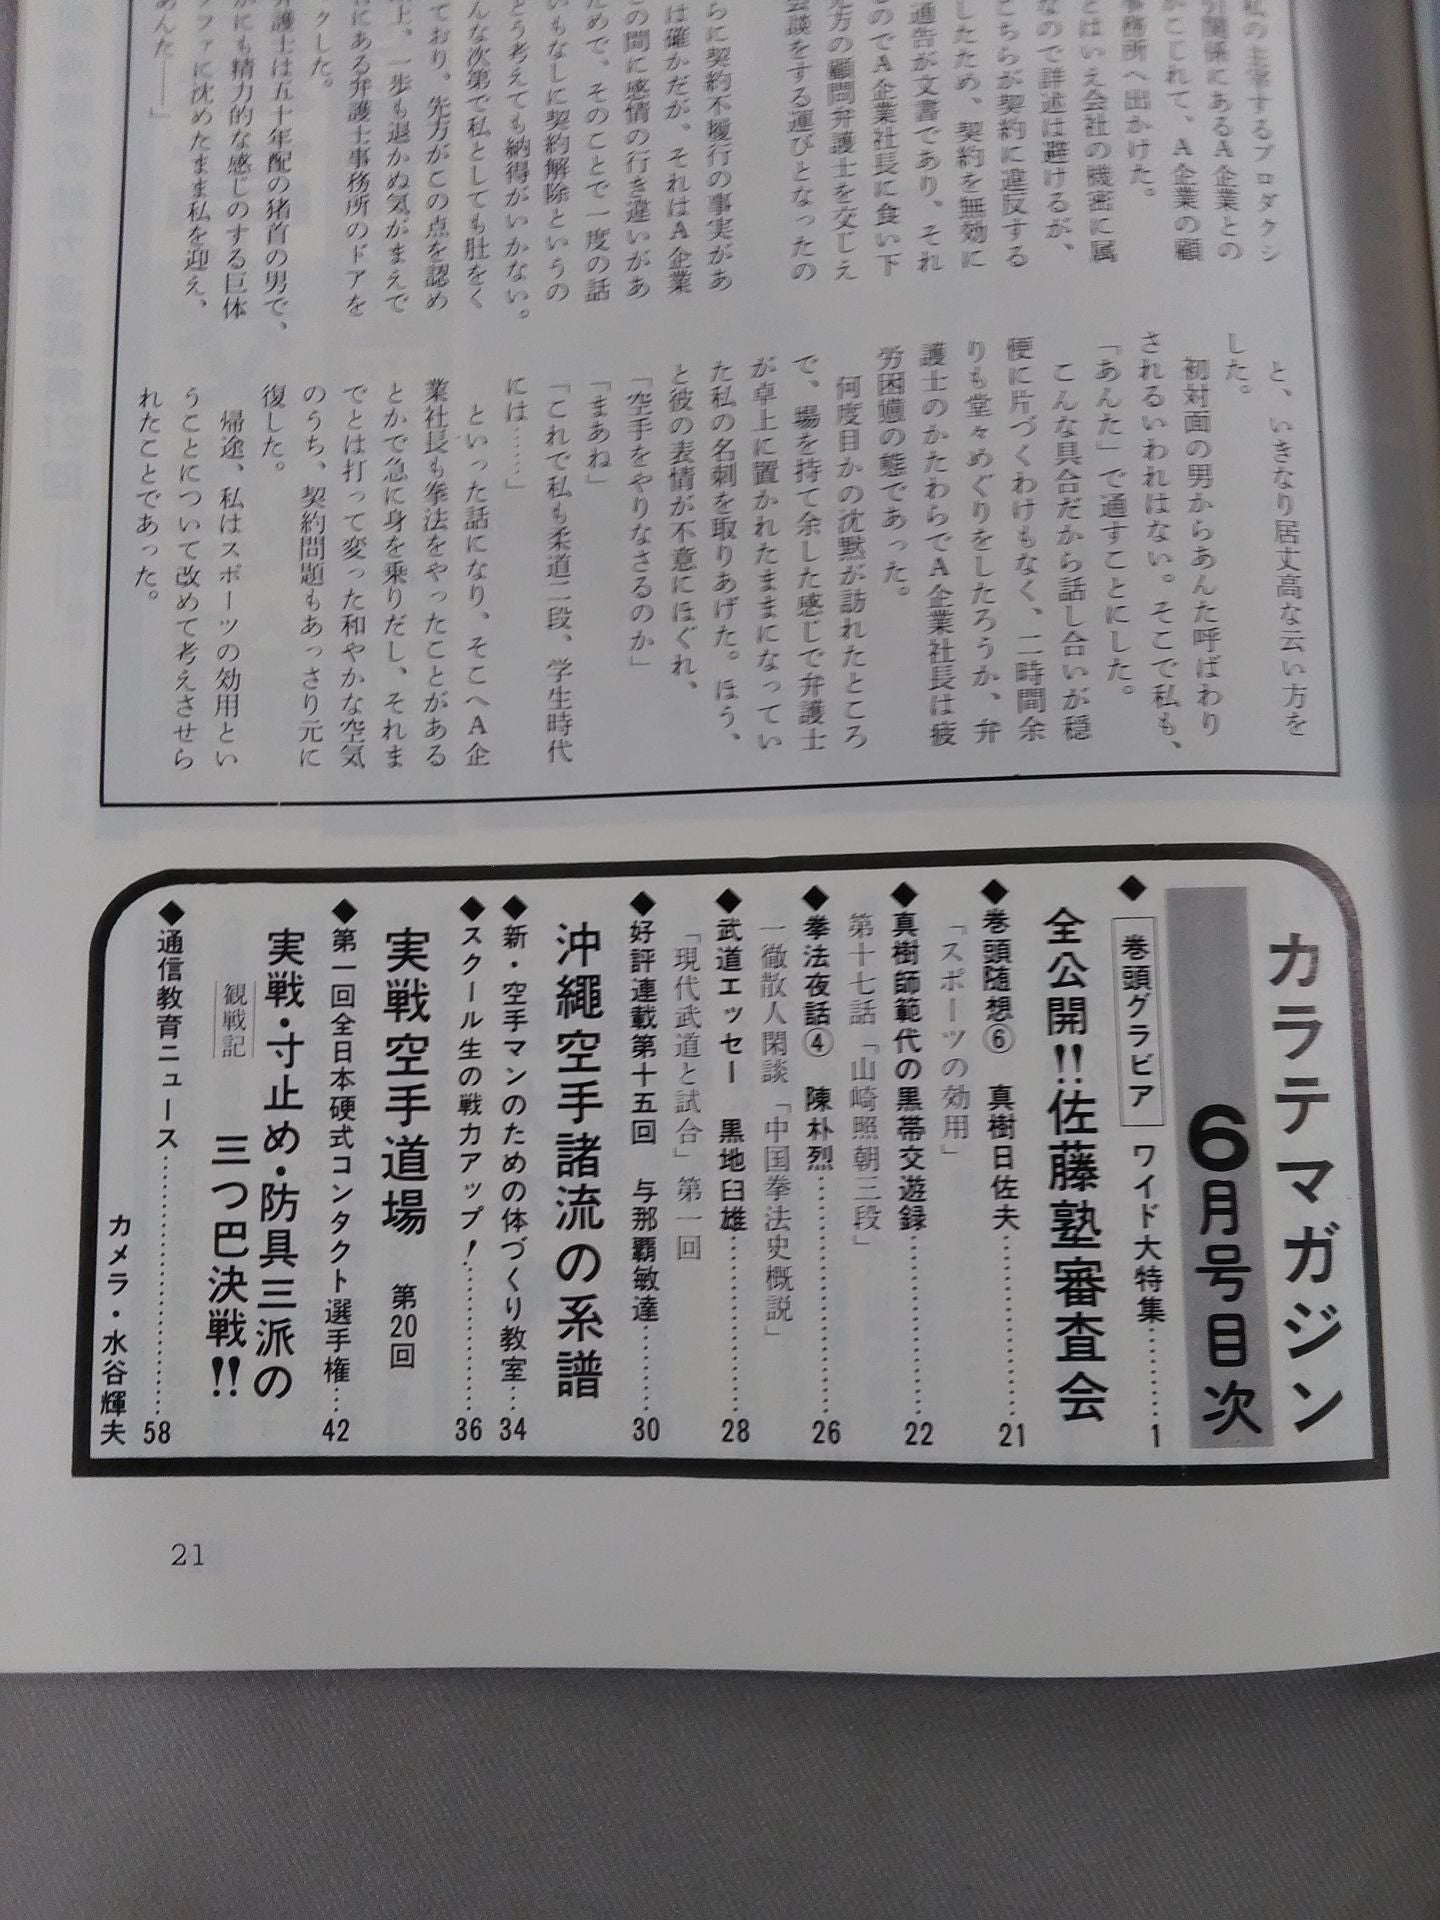 私の主宰するプロダクシ
引関係にあるA企業との
がこじれて、A企業の顧
事務所へ出かけた。
とはいえ会社の機密に属
なので詳述は避けるが、
こちらが契約に違反する
したため、契約を無効に
通告が文書であり、それ
ものでA企業社長に食い下
先方の顧問弁護士を交じえ
会談をする運びとなったの
らに契約不履行の事実があ
は確かだが、それはA企業
の間に感情の行き違いがあ
ためで、そのことで一度の話
いもなしに契約解除というの
どう考えても納得がいかない。
んな次第で私としても肚をく
ており、先方がこの点を認め
上、一歩も退かぬ気がまえで
にある弁護士事務所のドアを
クした。
弁護士は五十年配の猪首の男で、
かにも精力的な感じのする巨体
ファに沈めたまま私を迎え、
あんた――」
と、いきなり居丈高な云い方を
した。
初対面の男からあんた呼ばわり
されるいわれはない。そこで私も、
「あんた」で通すことにした。
こんな具合だから話し合いが穏
便に片づくわけもなく、二時間余
りも堂々めぐりをしたろうか、弁
護士のかたわらでA企業社長は疲
労困憊の態であった。
何度目かの沈黙が訪れたところ
で、場を持て余した感じで弁護士
が卓上に置かれたままになってい
た私の名刺を取りあげた。ほう、
と彼の表情が不意にほぐれ、
「空手をやりなさるのか」
「まあね」
「これで私も柔道二段、学生時代
には……」
といった話になり、そこへA企
業社長も拳法をやったことがある
とかで急に身を乗りだし、それま
でとは打って変った和やかな空気
のうち、契約問題もあっさり元に
復した。
帰途、私はスポーツの効用とい
うことについて改めて考えさせら
れたことであった。
カラテマガジン
6月号目次
◆巻頭グラビア ワイド大特集………1
全公開!!佐藤塾審査会
◆巻頭随想⑥ 真樹日佐夫………21
「スポーツの効用」
◆真樹師範代の黒帯交遊録………22
第十七話「山崎照朝三段」
◆拳法夜話④ 陳朴烈………26
一徹散人閑談「中国拳法史概説」
◆武道エッセー 黒地臼雄………28
「現代武道と試合」第一回
◆好評連載第十五回 与那覇敏達………30
沖縄空手諸流の系譜
◆新・空手マンのための体づくり教室…34
◆スクール生の戦力アップ!………36
実戦空手道場 第20回
◆第一回全日本硬式コンタクト選手権…42
実戦・寸止め・防具三派の
観戦記 三つ巴決戦!!
◆通信教育ニュース………58
カメラ・水谷輝夫
21